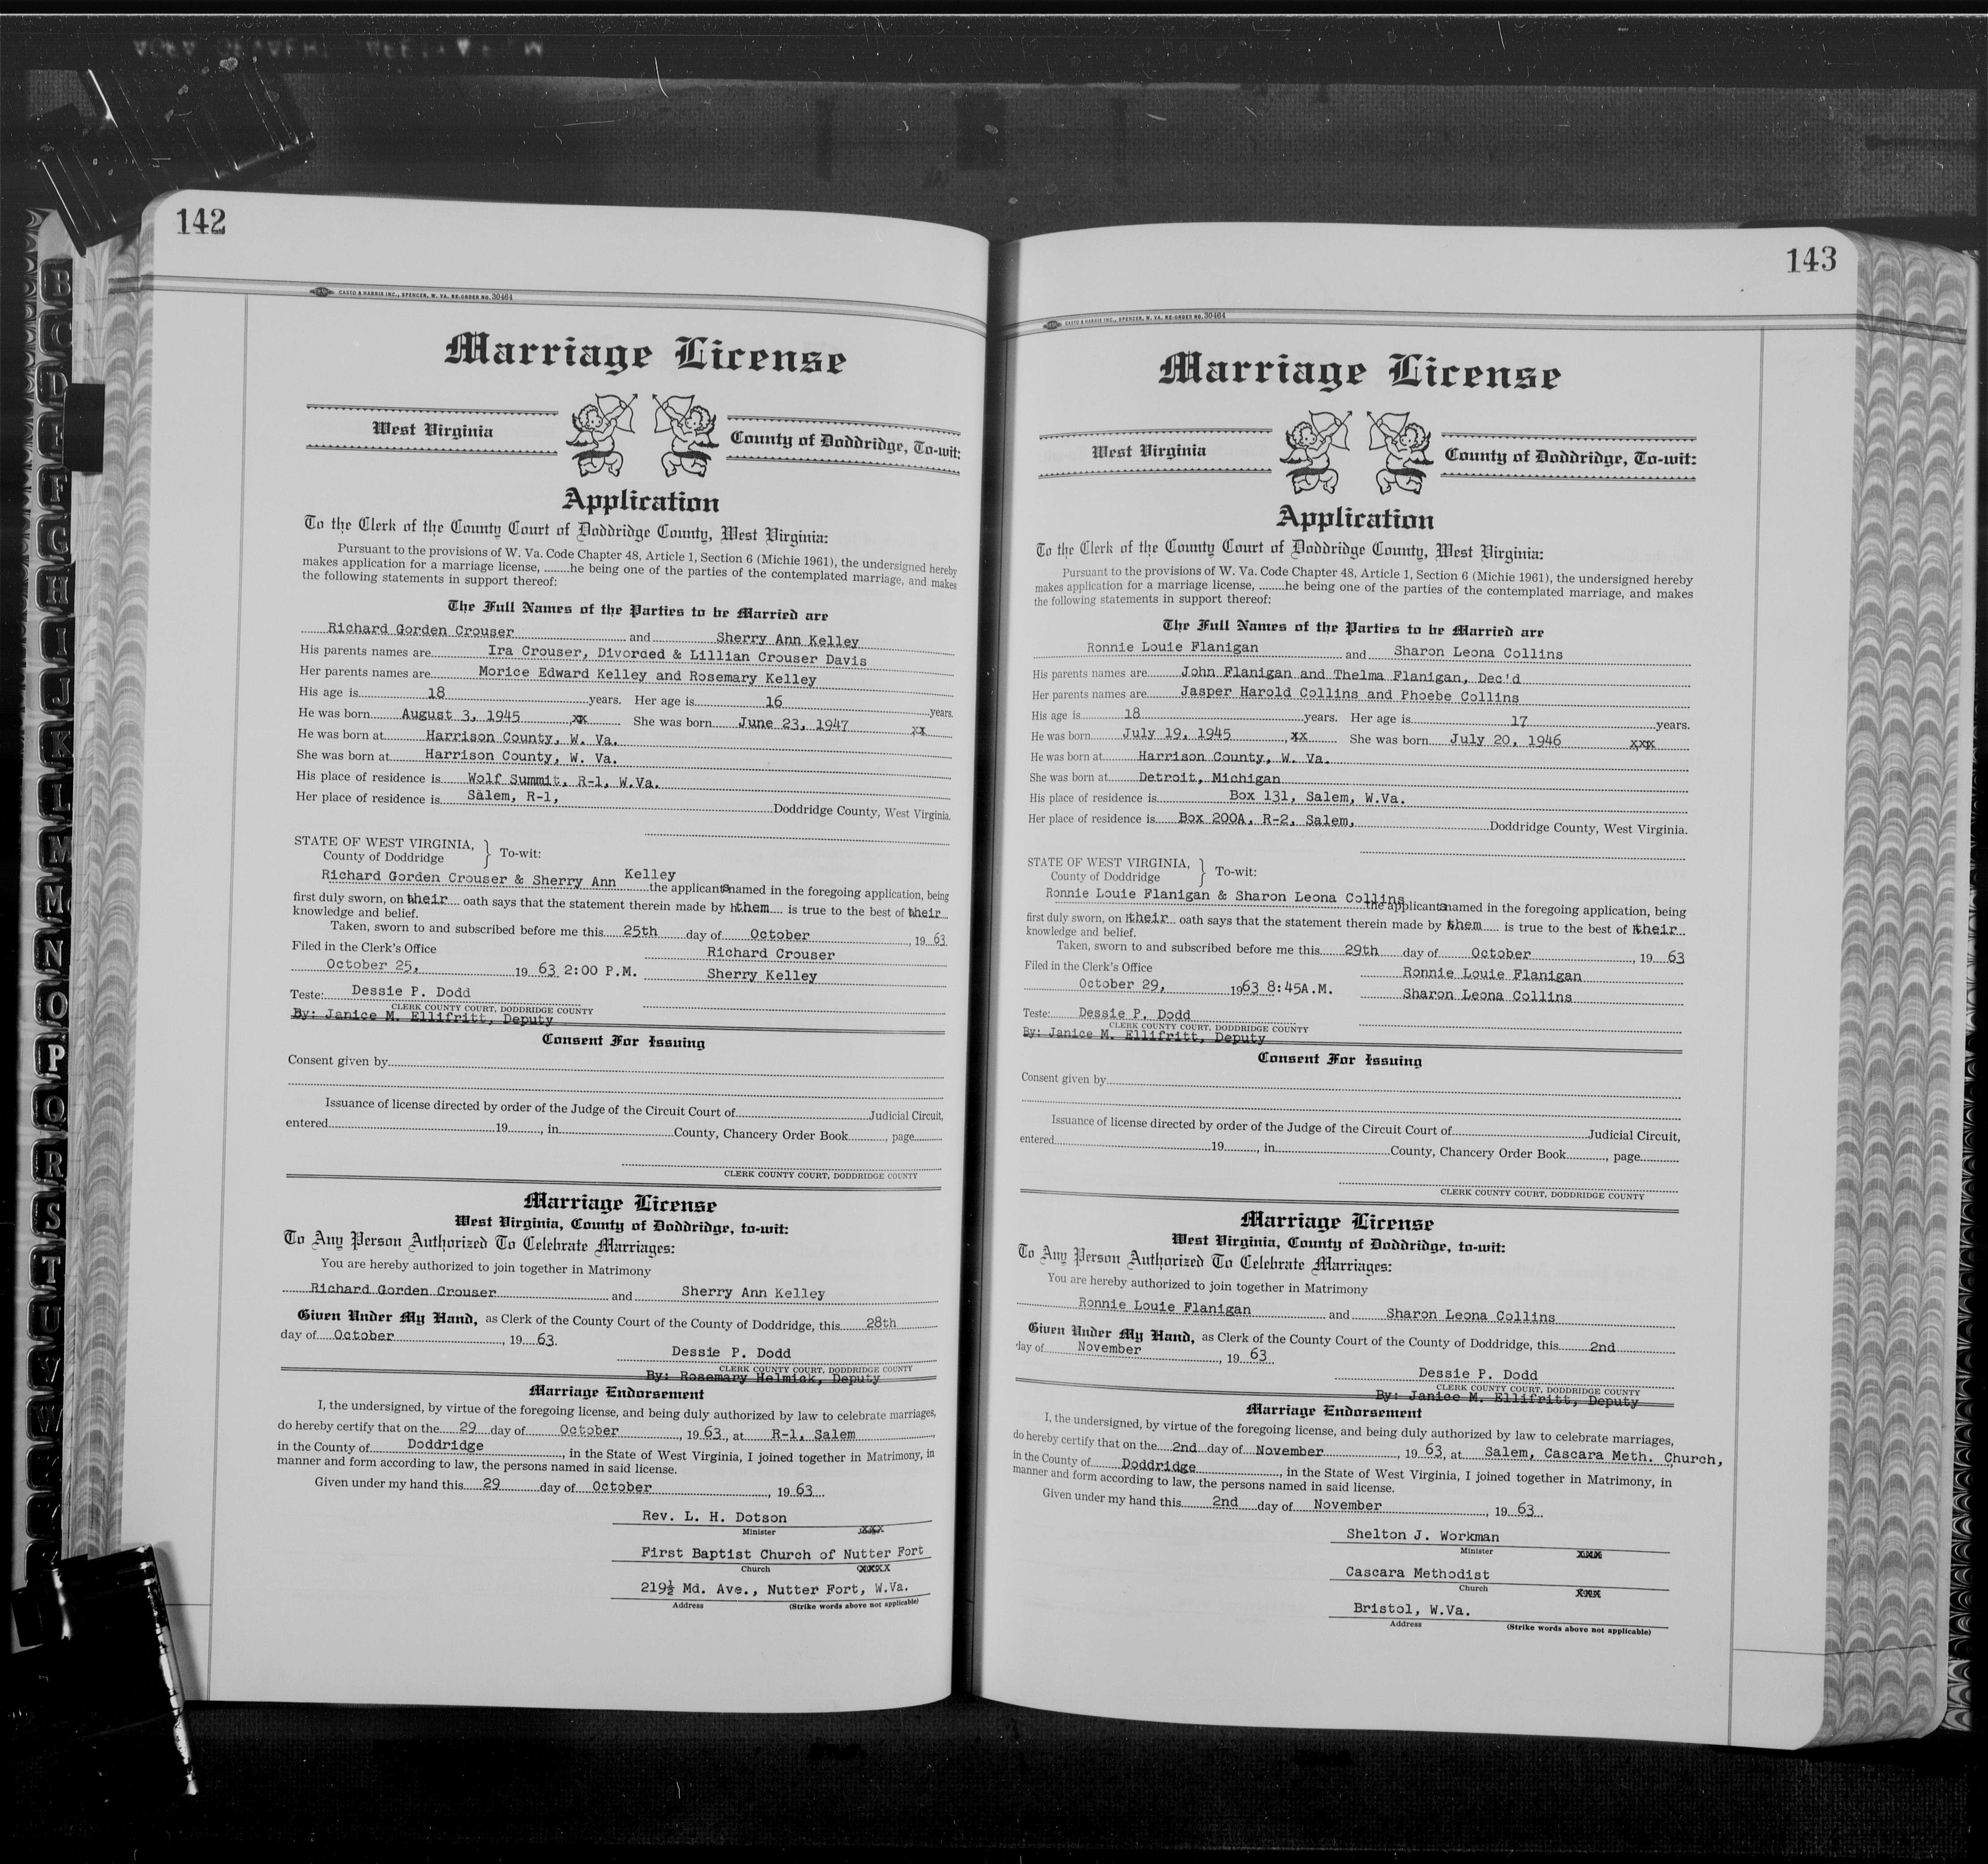 142
CASTO & HARRIS INC., SPENCER, W. VA. RE-ORDER NO. 30464
Marriage License
West Virginia
County of Doddridge, To-wit:
Application
To the Clerk of the County Court of Doddridge County, West Virginia:
Pursuant to the provisions of W. Va. Code Chapter 48, Article 1, Section 6 (Michie 1961), the undersigned hereby
makes application for a marriage license, ........he being one of the parties of the contemplated marriage, and makes
the following statements in support thereof:
The Full Names of the Parties to be Married are
Richard Gorden Crouser and Sherry Ann Kelley
His parents names are Ira Crouser, Divorded & Lillian Crouser Davis
Her parents names are Morice Edward Kelley and Rosemary Kelley
His age is 18 years. Her age is 16 years.
He was born August 3, 1945, xx She was born June 23, 1947 xx
He was born at Harrison County, W. Va.
She was born at Harrison County, W. Va.
His place of residence is Wolf Summit, R-1, W.Va.
Her place of residence is Salem, R-1, Doddridge County, West Virginia.
STATE OF WEST VIRGINIA,
County of Doddridge } To-wit:
Richard Gorden Crouser & Sherry Ann Kelley the applicants named in the foregoing application, being
first duly sworn, on their oath says that the statement therein made by them is true to the best of their
knowledge and belief.
Taken, sworn to and subscribed before me this 25th day of October, 19 63
Filed in the Clerk's Office Richard Crouser
October 25, 19 63 2:00 P.M. Sherry Kelley
Teste: Dessie P. Dodd
CLERK COUNTY COURT, DODDRIDGE COUNTY
By: Janice M. Ellifritt, Deputy
Consent For Issuing
Consent given by
Issuance of license directed by order of the Judge of the Circuit Court of Judicial Circuit,
entered 19, in County, Chancery Order Book, page
CLERK COUNTY COURT, DODDRIDGE COUNTY
Marriage License
West Virginia, County of Doddridge, to-wit:
To Any Person Authorized To Celebrate Marriages:
You are hereby authorized to join together in Matrimony
Richard Gorden Crouser and Sherry Ann Kelley
Given Under My Hand, as Clerk of the County Court of the County of Doddridge, this 28th
day of October, 19 63.
Dessie P. Dodd
CLERK COUNTY COURT, DODDRIDGE COUNTY
By: Rosemary Helmick, Deputy
Marriage Endorsement
I, the undersigned, by virtue of the foregoing license, and being duly authorized by law to celebrate marriages,
do hereby certify that on the 29 day of October, 19 63, at R-1, Salem
in the County of Doddridge, in the State of West Virginia, I joined together in Matrimony, in
manner and form according to law, the persons named in said license.
Given under my hand this 29 day of October, 19 63
Rev. L. H. Dotson
Minister xxx
First Baptist Church of Nutter Fort
Church xxxx
219½ Md. Ave., Nutter Fort, W.Va.
Address (Strike words above not applicable)
143
CASTO & HARRIS INC., SPENCER, W. VA. RE-ORDER NO. 30464
Marriage License
West Virginia
County of Doddridge, To-wit:
Application
To the Clerk of the County Court of Doddridge County, West Virginia:
Pursuant to the provisions of W. Va. Code Chapter 48, Article 1, Section 6 (Michie 1961), the undersigned hereby
makes application for a marriage license, ........he being one of the parties of the contemplated marriage, and makes
the following statements in support thereof:
The Full Names of the Parties to be Married are
Ronnie Louie Flanigan and Sharon Leona Collins
His parents names are John Flanigan and Thelma Flanigan, Dec'd
Her parents names are Jasper Harold Collins and Phoebe Collins
His age is 18 years. Her age is 17 years.
He was born July 19, 1945, xx She was born July 20, 1946 xxx
He was born at Harrison County, W. Va.
She was born at Detroit, Michigan
His place of residence is Box 131, Salem, W.Va.
Her place of residence is Box 200A, R-2, Salem, Doddridge County, West Virginia.
STATE OF WEST VIRGINIA,
County of Doddridge } To-wit:
Ronnie Louie Flanigan & Sharon Leona Collins the applicants named in the foregoing application, being
first duly sworn, on their oath says that the statement therein made by them is true to the best of their
knowledge and belief.
Taken, sworn to and subscribed before me this 29th day of October, 19 63
Filed in the Clerk's Office Ronnie Louie Flanigan
October 29, 1963 8:45A.M. Sharon Leona Collins
Teste: Dessie P. Dodd
CLERK COUNTY COURT, DODDRIDGE COUNTY
By: Janice M. Ellifritt, Deputy
Consent For Issuing
Consent given by
Issuance of license directed by order of the Judge of the Circuit Court of Judicial Circuit,
entered 19, in County, Chancery Order Book, page
CLERK COUNTY COURT, DODDRIDGE COUNTY
Marriage License
West Virginia, County of Doddridge, to-wit:
To Any Person Authorized To Celebrate Marriages:
You are hereby authorized to join together in Matrimony
Ronnie Louie Flanigan and Sharon Leona Collins
Given Under My Hand, as Clerk of the County Court of the County of Doddridge, this 2nd
day of November, 19 63
Dessie P. Dodd
CLERK COUNTY COURT, DODDRIDGE COUNTY
By: Janice M. Ellifritt, Deputy
Marriage Endorsement
I, the undersigned, by virtue of the foregoing license, and being duly authorized by law to celebrate marriages,
do hereby certify that on the 2nd day of November, 19 63, at Salem, Cascara Meth. Church,
in the County of Doddridge, in the State of West Virginia, I joined together in Matrimony, in
manner and form according to law, the persons named in said license.
Given under my hand this 2nd day of November, 19 63
Shelton J. Workman
Minister xxx
Cascara Methodist
Church xxx
Bristol, W.Va.
Address (Strike words above not applicable)
B
C
D
E
F
G
H
I
J
K
L
M
M
N
O
P
Q
R
S
T
U
V
W